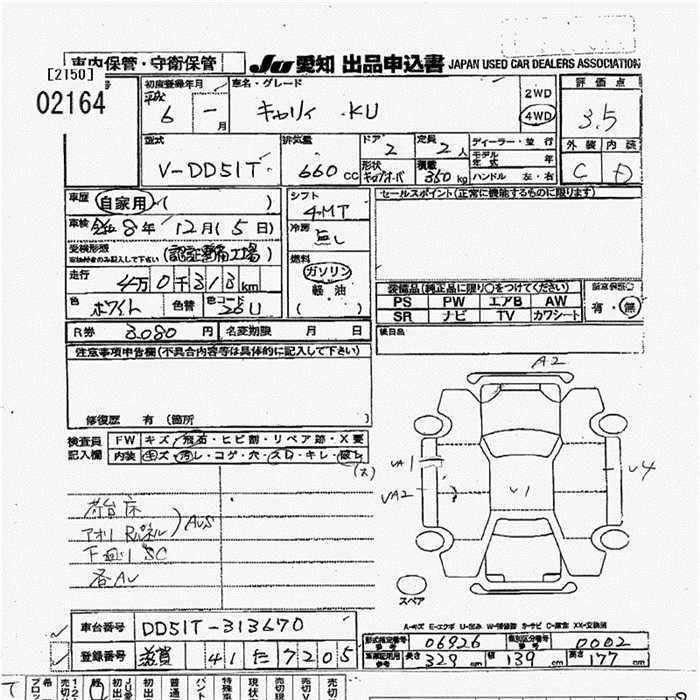 車内保管・守衛保管
JU 愛知 出品申込書 JAPAN USED CAR DEALERS ASSOCIATION
[2150]
02164
初度登録年月 車名・グレード 評価点
平成 6 年 月 キャリィ KU 2WD 4WD 3.5
型式 排気量 ドア 定員 ディーラー・並行 外装 内装
V-DD51T 660 CC 2 2人 モデル年式 年 C D
形状 積載 350 kg ハンドル 左・右
車歴 自家用 ( ) シフト セールスポイント(正常に機能するものに限ります)
4MT
車検 令和 8年 12月(5日) 冷房 無し
受検形態
走行 4万0千313km 燃料 ガソリン 軽油 ( )
装備品(純正品に限り○をつけてください) 有・無
色 ホワイト 色替 色コード 26U
PS PW エアB AW
SR ナビ TV カワシート
R券 8.080 円 名変期限 月 日 後日品
注意事項申告欄(不具合内容等は具体的に記入して下さい)
修復歴 有 (箇所 )
A2
検査員 FW キズ・飛石・ヒビ割・リペア跡・X要
記入欄 内装 キズ・汚レ・コゲ・穴・スレ・キレ・破レ
(大)
UA1
UA2
U1
U4
荷台床
アオリ Rパネル AUS
下廻り SC
各AU
スペア
A-キズ E-エクボ U-凹み W-補修跡 S-サビ C-腐食 XX-交換済
車台番号 DD51T-313670
型式指定番号 06926 類別区分番号 0002
登録番号 滋賀 41 た 7205
長さ 329 cm 幅 139 cm 高さ 177 cm